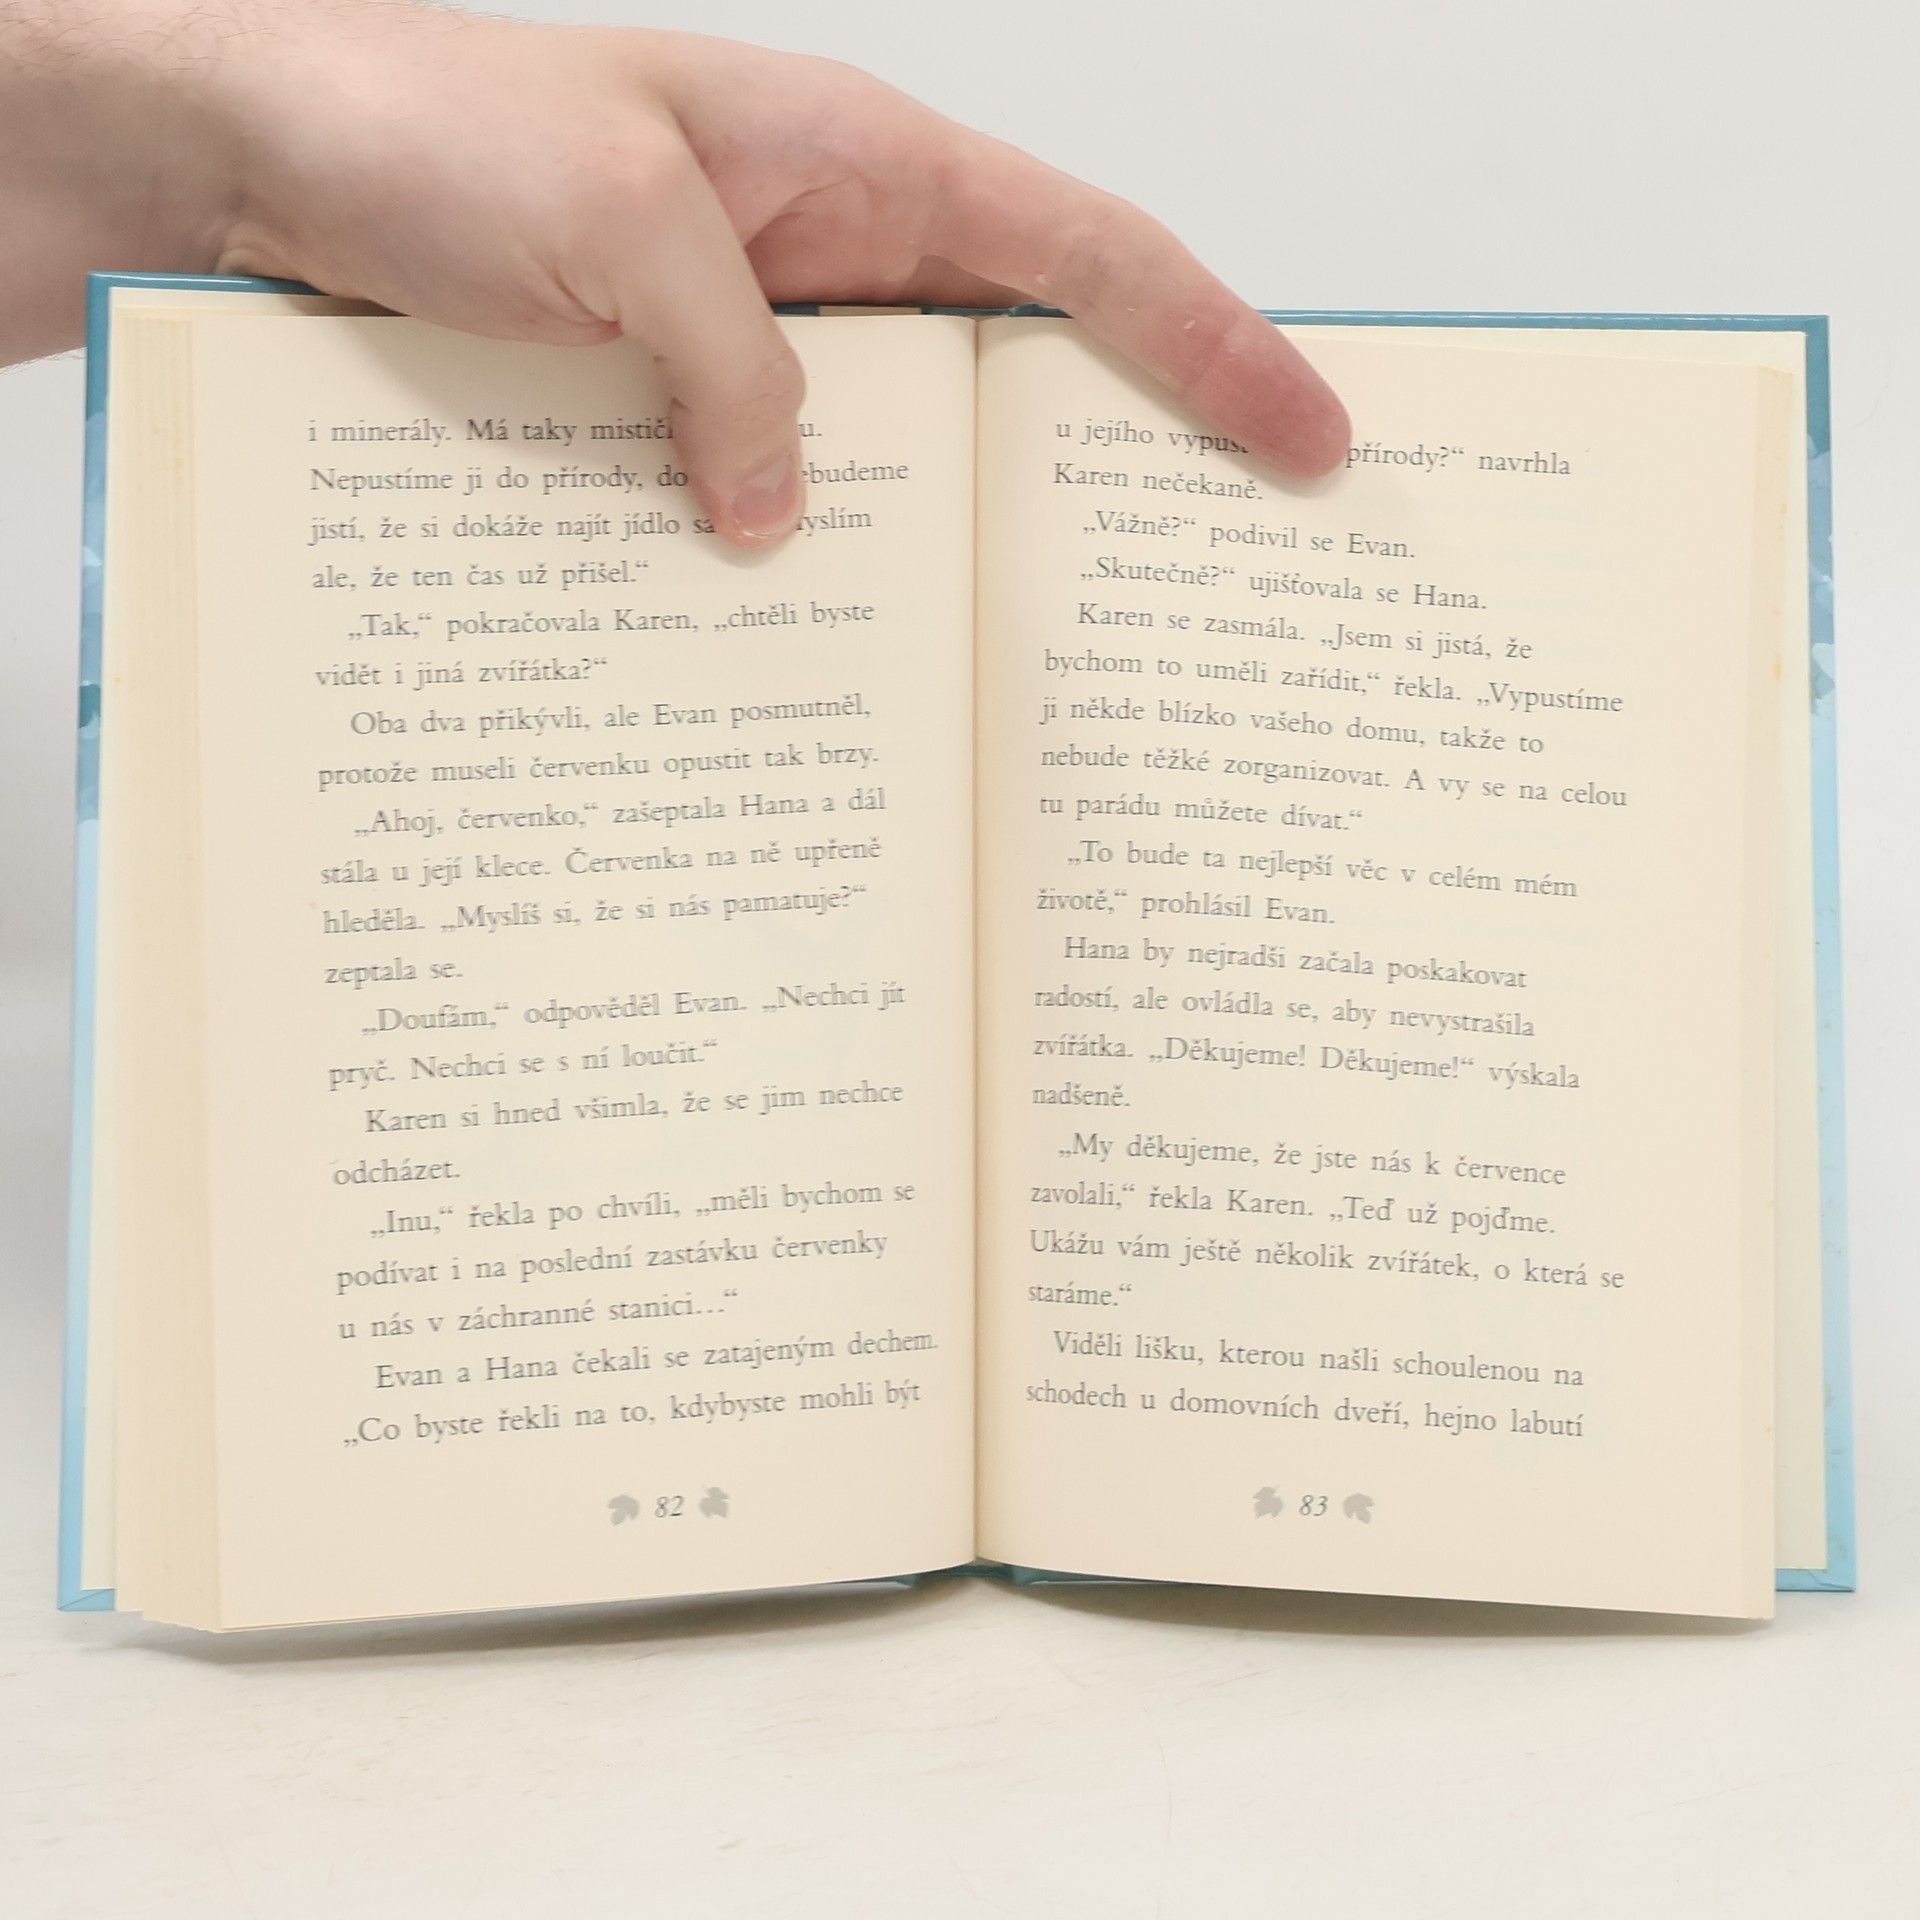 i minerály. Má taky
Nepustíme ji do přírody,
jistí, že si dokáže najít jídlo
ale, že ten čas už přišel.“
„Tak,“ pokračovala Karen, „chtěli byste
vidět i jiná zvířátka?“
Oba dva přikývli, ale Evan posmutněl,
protože museli červenku opustit tak brzy.
„Ahoj, červenko,“ zašeptala Hana a dál
stála u její klece. Červenka na ně upřeně
hleděla. „Myslíš si, že si nás pamatuje?“
zeptala se.
„Doufám,“ odpověděl Evan. „Nechci jít
pryč. Nechci se s ní loučit.“
Karen si hned všimla, že se jim nechce
odcházet.
„Inu,“ řekla po chvíli, „měli bychom se
podívat i na poslední zastávku červenky
u nás v záchranné stanici…“
Evan a Hana čekali se zatajeným dechem.
„Co byste řekli na to, kdybyste mohli být
82
u jejího přírody?“ navrhla
Karen nečekaně.
„Vážně?“ podivil se Evan.
„Skutečně?“ ujišťovala se Hana.
Karen se zasmála. „Jsem si jistá, že
bychom to uměli zařídit,“ řekla. „Vypustíme
ji někde blízko vašeho domu, takže to
nebude těžké zorganizovat. A vy se na celou
tu parádu můžete dívat.“
„To bude ta nejlepší věc v celém mém
životě,“ prohlásil Evan.
Hana by nejradši začala poskakovat
radostí, ale ovládla se, aby nevystrašila
zvířátka. „Děkujeme! Děkujeme!“ výskala
nadšeně.
„My děkujeme, že jste nás k července
zavolali,“ řekla Karen. „Teď už pojďme.
Ukážu vám ještě několik zvířátek, o která se
staráme.“
Viděli lišku, kterou našli schoulenou na
schodech u domovních dveří, hejno labutí
83